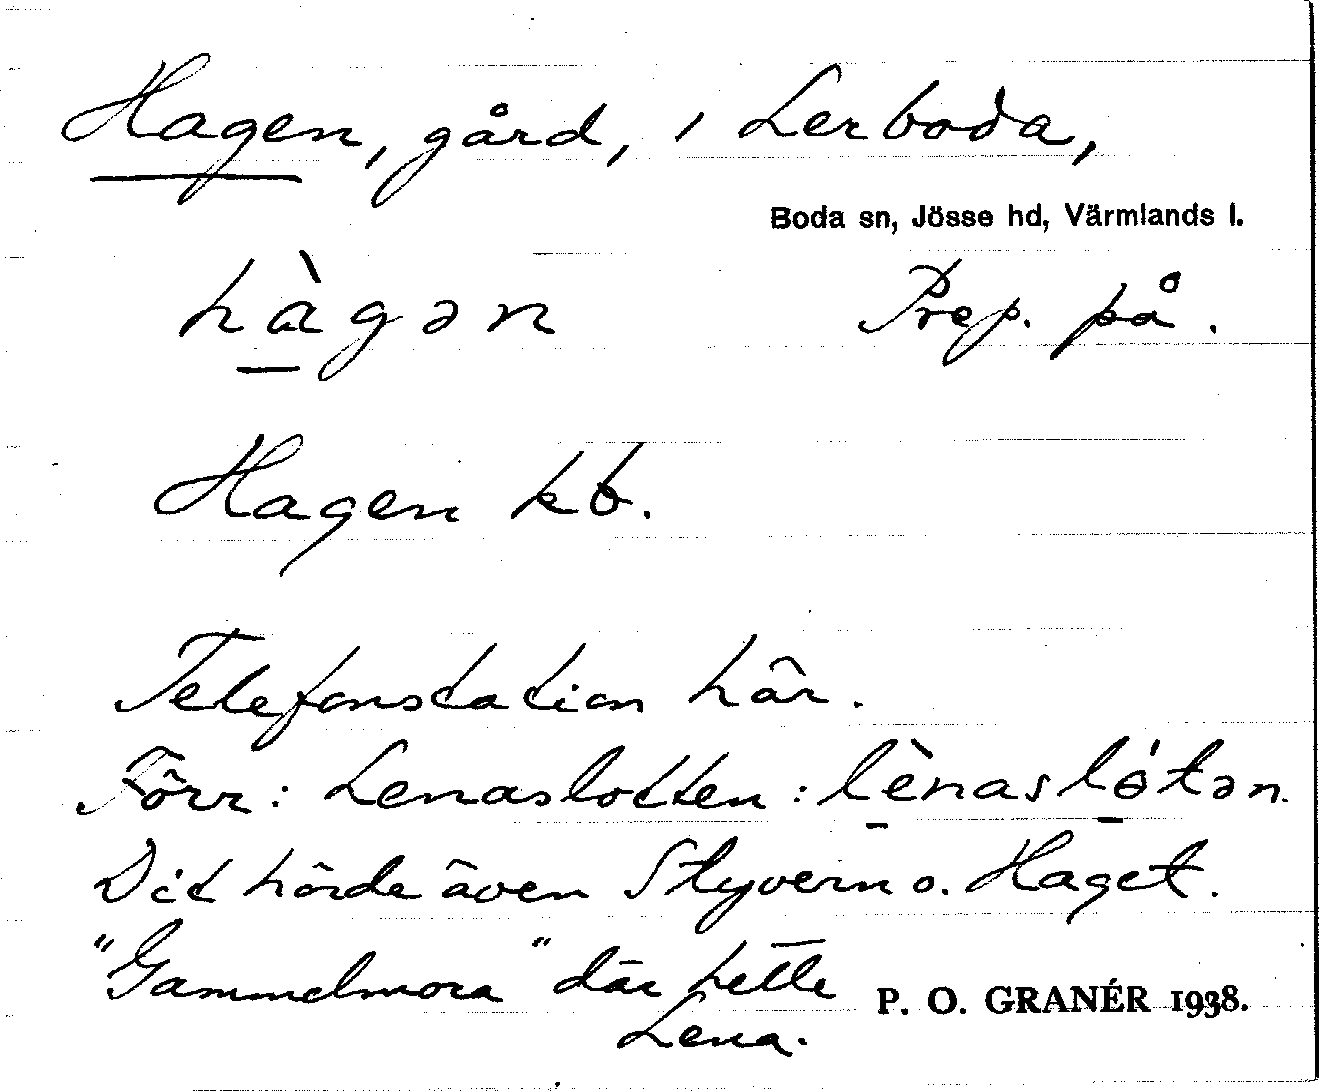 Hagen, gård, i Lerboda,
Boda sn, Jösse hd, Värmlands l.
hàgən Prep. på.
Hagen kb.
Telefonstation här.
Förr: Lenaslotten: lènaslótən.
Dit hörde även Styvern o. Haget.
"Gammelmora" där hette
Lena.
P. O. GRANÉR 1938.